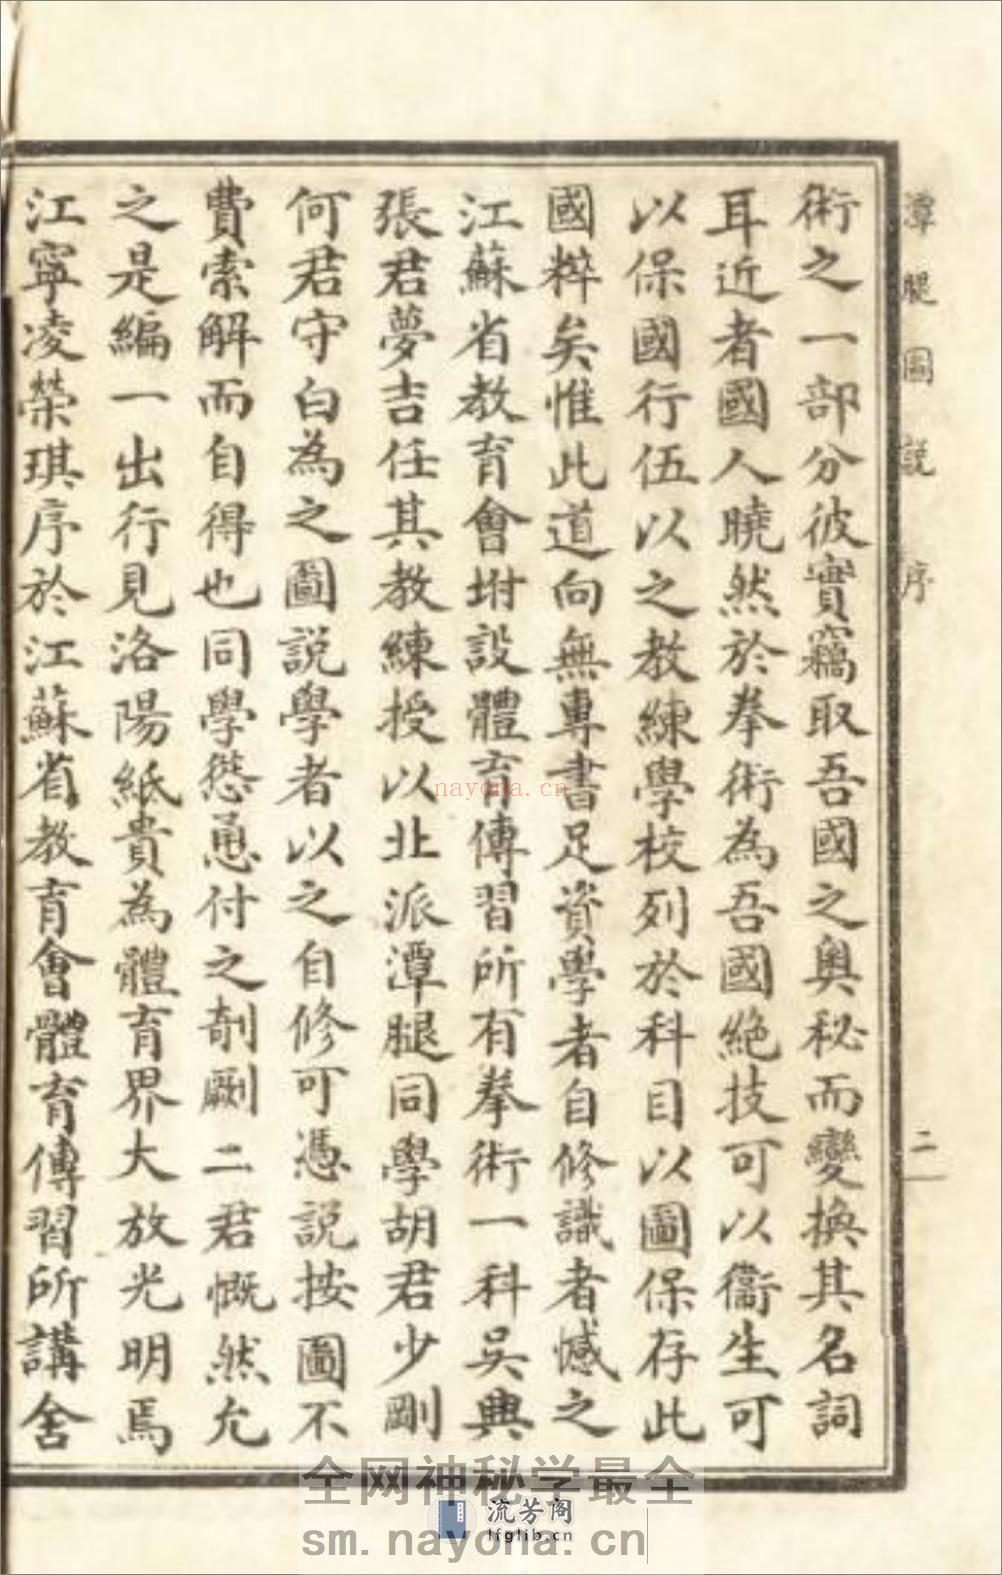 潭腿圖說 序
二
術之一部分彼實竊取吾國之奧秘而變換其名詞
耳近者國人曉然於拳術為吾國絕技可以衞生可
以保國行伍以之教練學校列於科目以圖保存此
國粹矣惟此道向無專書足資學者自修識者憾之
江蘇省教育會坿設體育傳習所有拳術一科吳典
張君夢吉任其教練授以北派潭腿同學胡君少剛
何君守白為之圖說學者以之自修可憑說按圖不
費索解而自得也同學慫恿付之剞劂二君慨然允
之是編一出行見洛陽紙貴為體育界大放光明焉
江寧凌榮琪序於江蘇省教育會體育傳習所講舍
nayona.cn
全网神秘学最全
流芳阁
lfglib.cn
sm.nayona.cn